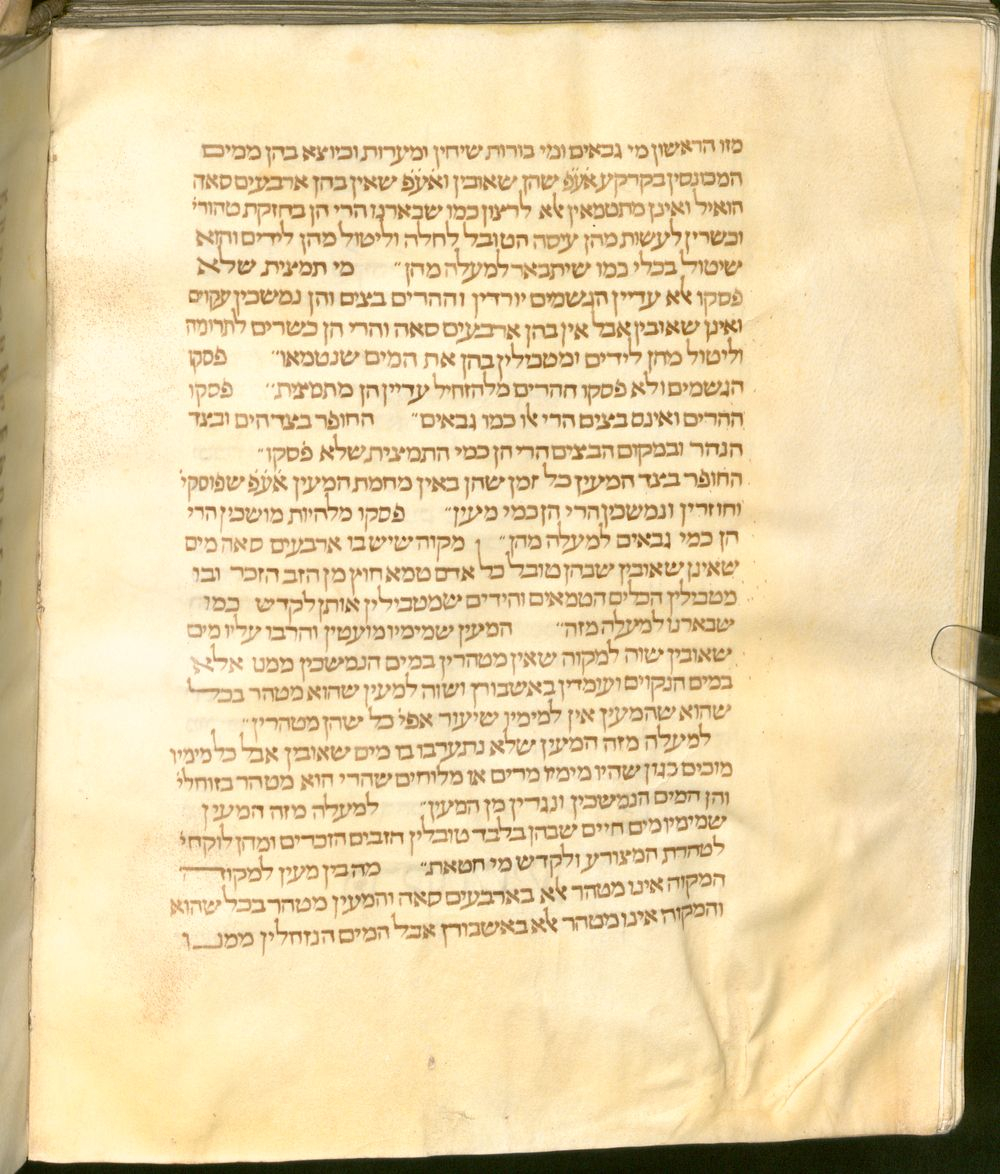 מזו הראשון מי גבאים ומי בורות שיחין ומערות וכיוצא בהן ממים
המכונסין בקרקע אע׳פ שהן שאובין ואע׳פ שאין בהן ארבעים סאה
הואיל ואינן מתטמאין אלא לרצון כמו שבארנו הרי הן בחזקת טהורי׳
וכשרין לעשות מהן עיסה הטובל לחלה וליטול מהן לידים והוא
שיטול בכלי כמו שיתבאר למעלה מהן״ מי תמצית שלא
פסקו אלא עדיין הגשמים יורדין וההרים בצים והן נמשכין עקוים
ואינן שאובין אבל אין בהן ארבעים סאה והרי הן כשרים לתרומה
וליטול מהן לידים ומטבילין בהן את המים שנטמאו״ פסקו
הגשמים ולא פסקו ההרים מלהזחיל עדיין הן מתמצית״ פסקו
ההרים ואינם בצים הרי אלו כמו גבאים״ החופר בצד הים ובצד
הנהר ובמקום הבצים הרי הן כמי התמצית שלא פסקו״
החופר בצד המעין כל זמן שהן באין מחמת המעין אע׳פ שפוסקי׳
וחוזרין ונמשכין הרי הן כמי מעין״ פסקו מלהיות מושכין הרי
הן כמי גבאים למעלה מהן״ מקוה שיש בו ארבעים סאה מים
שאינן שאובין שבהן טובל כל אדם טמא חוץ מן הזב הזכר ובו
מטבילין הכלים הטמאים והידים שמטבילין אותן לקדש כמו
שבארנו למעלה מזה״ המעין שמימיו מועטין והרבו עליו מים
שאובין שוה למקוה שאין מטהרין במים הנמשכין ממנו אלא
במים הנקוים ועומדין באשבורן ושוה למעין שהוא מטהר בכל
שהוא שהמעין אין למימיו שיעור אפי׳ כל שהן מטהרין״
למעלה מזה המעין שלא נתערבו בו מים שאובין אבל כל מימיו
מוכים כגון שהיו מימיו מרים או מלוחים שהרי הוא מטהר בזוחלי׳
והן המים הנמשכין ונגרין מן המעין״ למעלה מזה המעין
שמימיו מים חיים שבהן בלבד טובלין הזבים הזכרים ומהן לוקחי׳
לטהרת המצורע ולקדש מי חטאת״ מה בין מעין למקוה
המקוה אינו מטהר אלא בארבעים סאה והמעין מטהר בכל שהוא
והמקוה אינו מטהר אלא באשבורן אבל המים הנזחלין ממנו